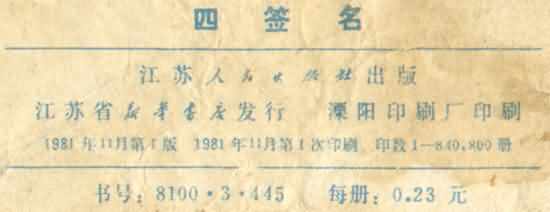 四签名
江苏人民出版社出版
江苏省新华书店发行 溧阳印刷厂印刷
1981年11月第1版 1981年11月第1次印刷 印数1—840,800册
书号：8100·3·445 每册：0.23元